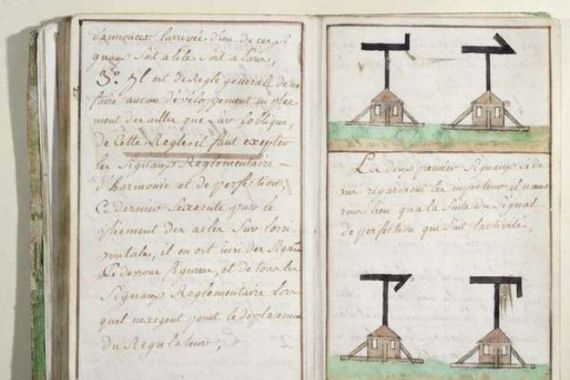 d'annoncer l'arrivée d'un de ces S
quaux soit a l'ele soit a l'axe,
3º. Il est de Regle generale de ne
faire aucun dévéloppement ni ploie
ment des ailes que sur l'oblique,
de Cette Regle-ci faut excepter
les Signaux Reglementaire
d'Harmonie et de perfection,
Ce dernier s'execute par le
ploiement des ailes sur l'orri
zontale, il en est insi des Signaux
Ci dessous figurés, et de tous les
Signaux Reglementaire lors
quel n'exigent point le deplacement
du Regulateur,
Les deux premier Signaux Ci de
regardent les inspecteur il n'aura
lieu qu'a la suite du Signal
de perfection qui suit l'activité,